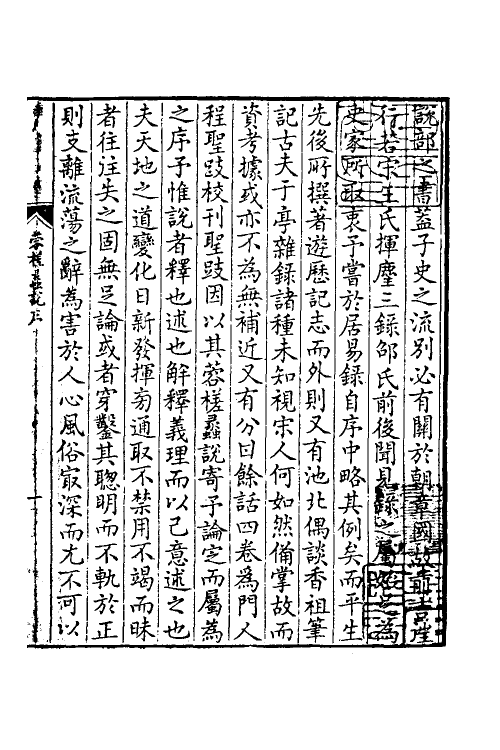 說部之書蓋子史之流別必有關於朝章國故前言往
行若宋王氏揮麈三錄邵氏前後聞見錄之屬始足為
史家所取衷予嘗於居易錄自序中略其例矣而平生
先後所撰著遊歷記志而外則又有池北偶談香祖筆
記古夫于亭雜錄諸種未知視宋人何如然備掌故而
資考據或亦不為無補近又有分甘餘話四卷為門人
程聖跂校刊聖跂因以其蓉槎蠡說寄予論定而屬為
之序予惟說者釋也述也解釋義理而以己意述之也
夫天地之道變化日新發揮旁通取不禁用不竭而昧
者往往失之固無足論或者穿鑿其聰明而不軌於正
則支離流蕩之辭為害於人心風俗㝡深而尤不可以
蓉槎蠡說序
一